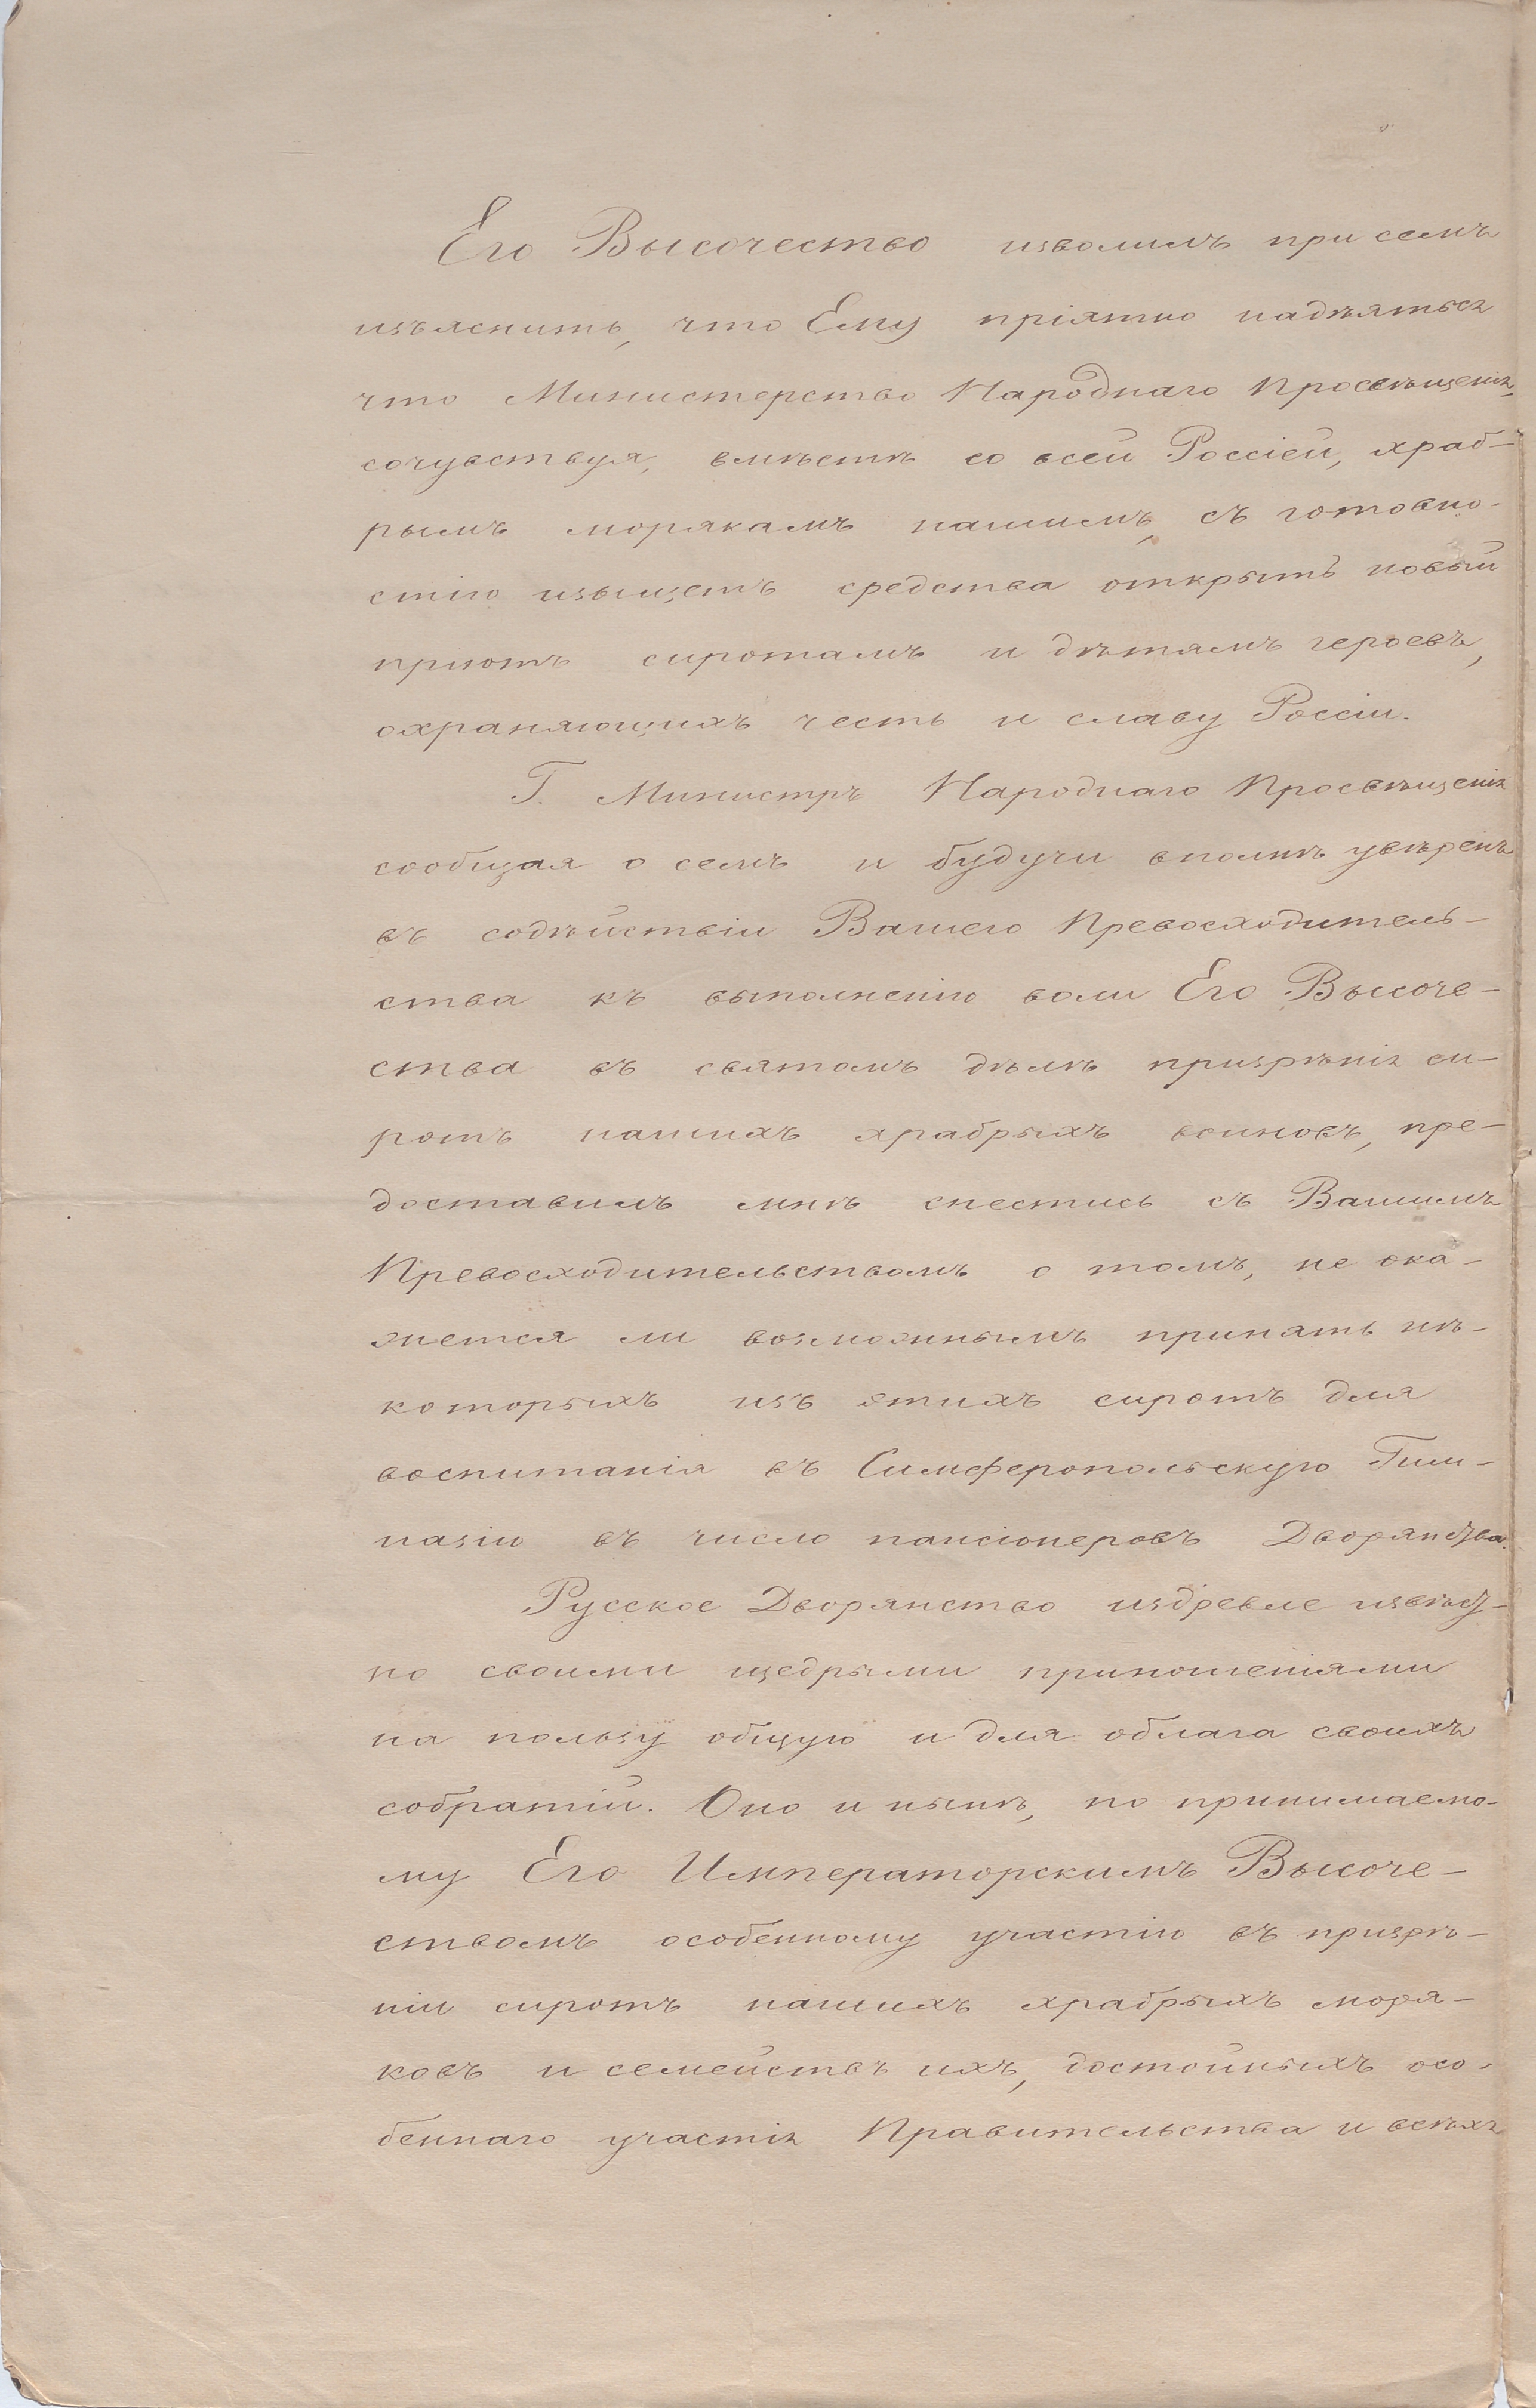 Его Высочество изволилъ при семъ
изъяснить, что Ему пріятно надѣяться
что Министерство Народнаго Просвѣщенія,
сочувствуя, вмѣстѣ со всей Россіей, храб-
рымъ морякамъ нашимъ, съ готовно-
стію изыщетъ средства открыть новый
пріютъ сиротамъ и дѣтямъ героевъ,
охраняющихъ честь и славу Россіи.
Г. Министръ Народнаго Просвѣщенія
сообщая о семъ и будучи вполнѣ увѣренъ
въ содѣйствіи Вашего Превосходитель-
ства къ выполненію воли Его Высоче-
ства въ святомъ дѣлѣ призрѣнія си-
ротъ нашихъ храбрыхъ воиновъ, пре-
доставилъ мнѣ снестись съ Вашимъ
Превосходительствомъ о томъ, не ока-
жется ли возможнымъ принять нѣ-
которыхъ изъ этихъ сиротъ для
воспитанія въ Симферопольскую Гим-
назію въ число пансіонеровъ Дворянства.
Русское Дворянство издревле извѣст-
но своими щедрыми приношеніями
на пользу общую и для облага своихъ
собратій. Оно и нынѣ, по принимаемо-
му Его Императорскимъ Высоче-
ствомъ особенному участію въ призрѣ-
ніи сиротъ нашихъ храбрыхъ моря-
ковъ и семействъ ихъ, достойныхъ осо-
беннаго участія Правительства и всѣхъ